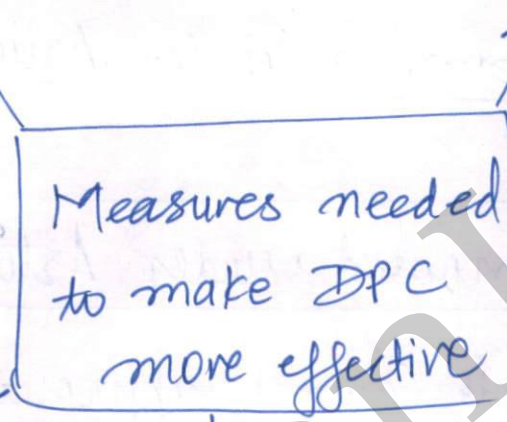 Measures needed
to make DPC
more effective